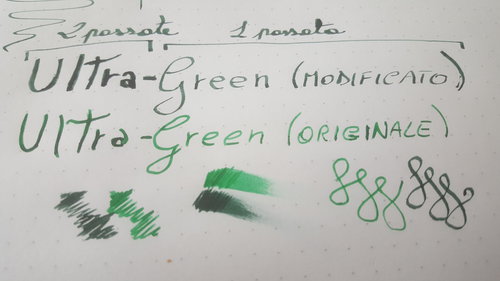 2 passate 1 passata
Ultra-Green (MODIFICATO)
Ultra-Green (ORIGINALE)